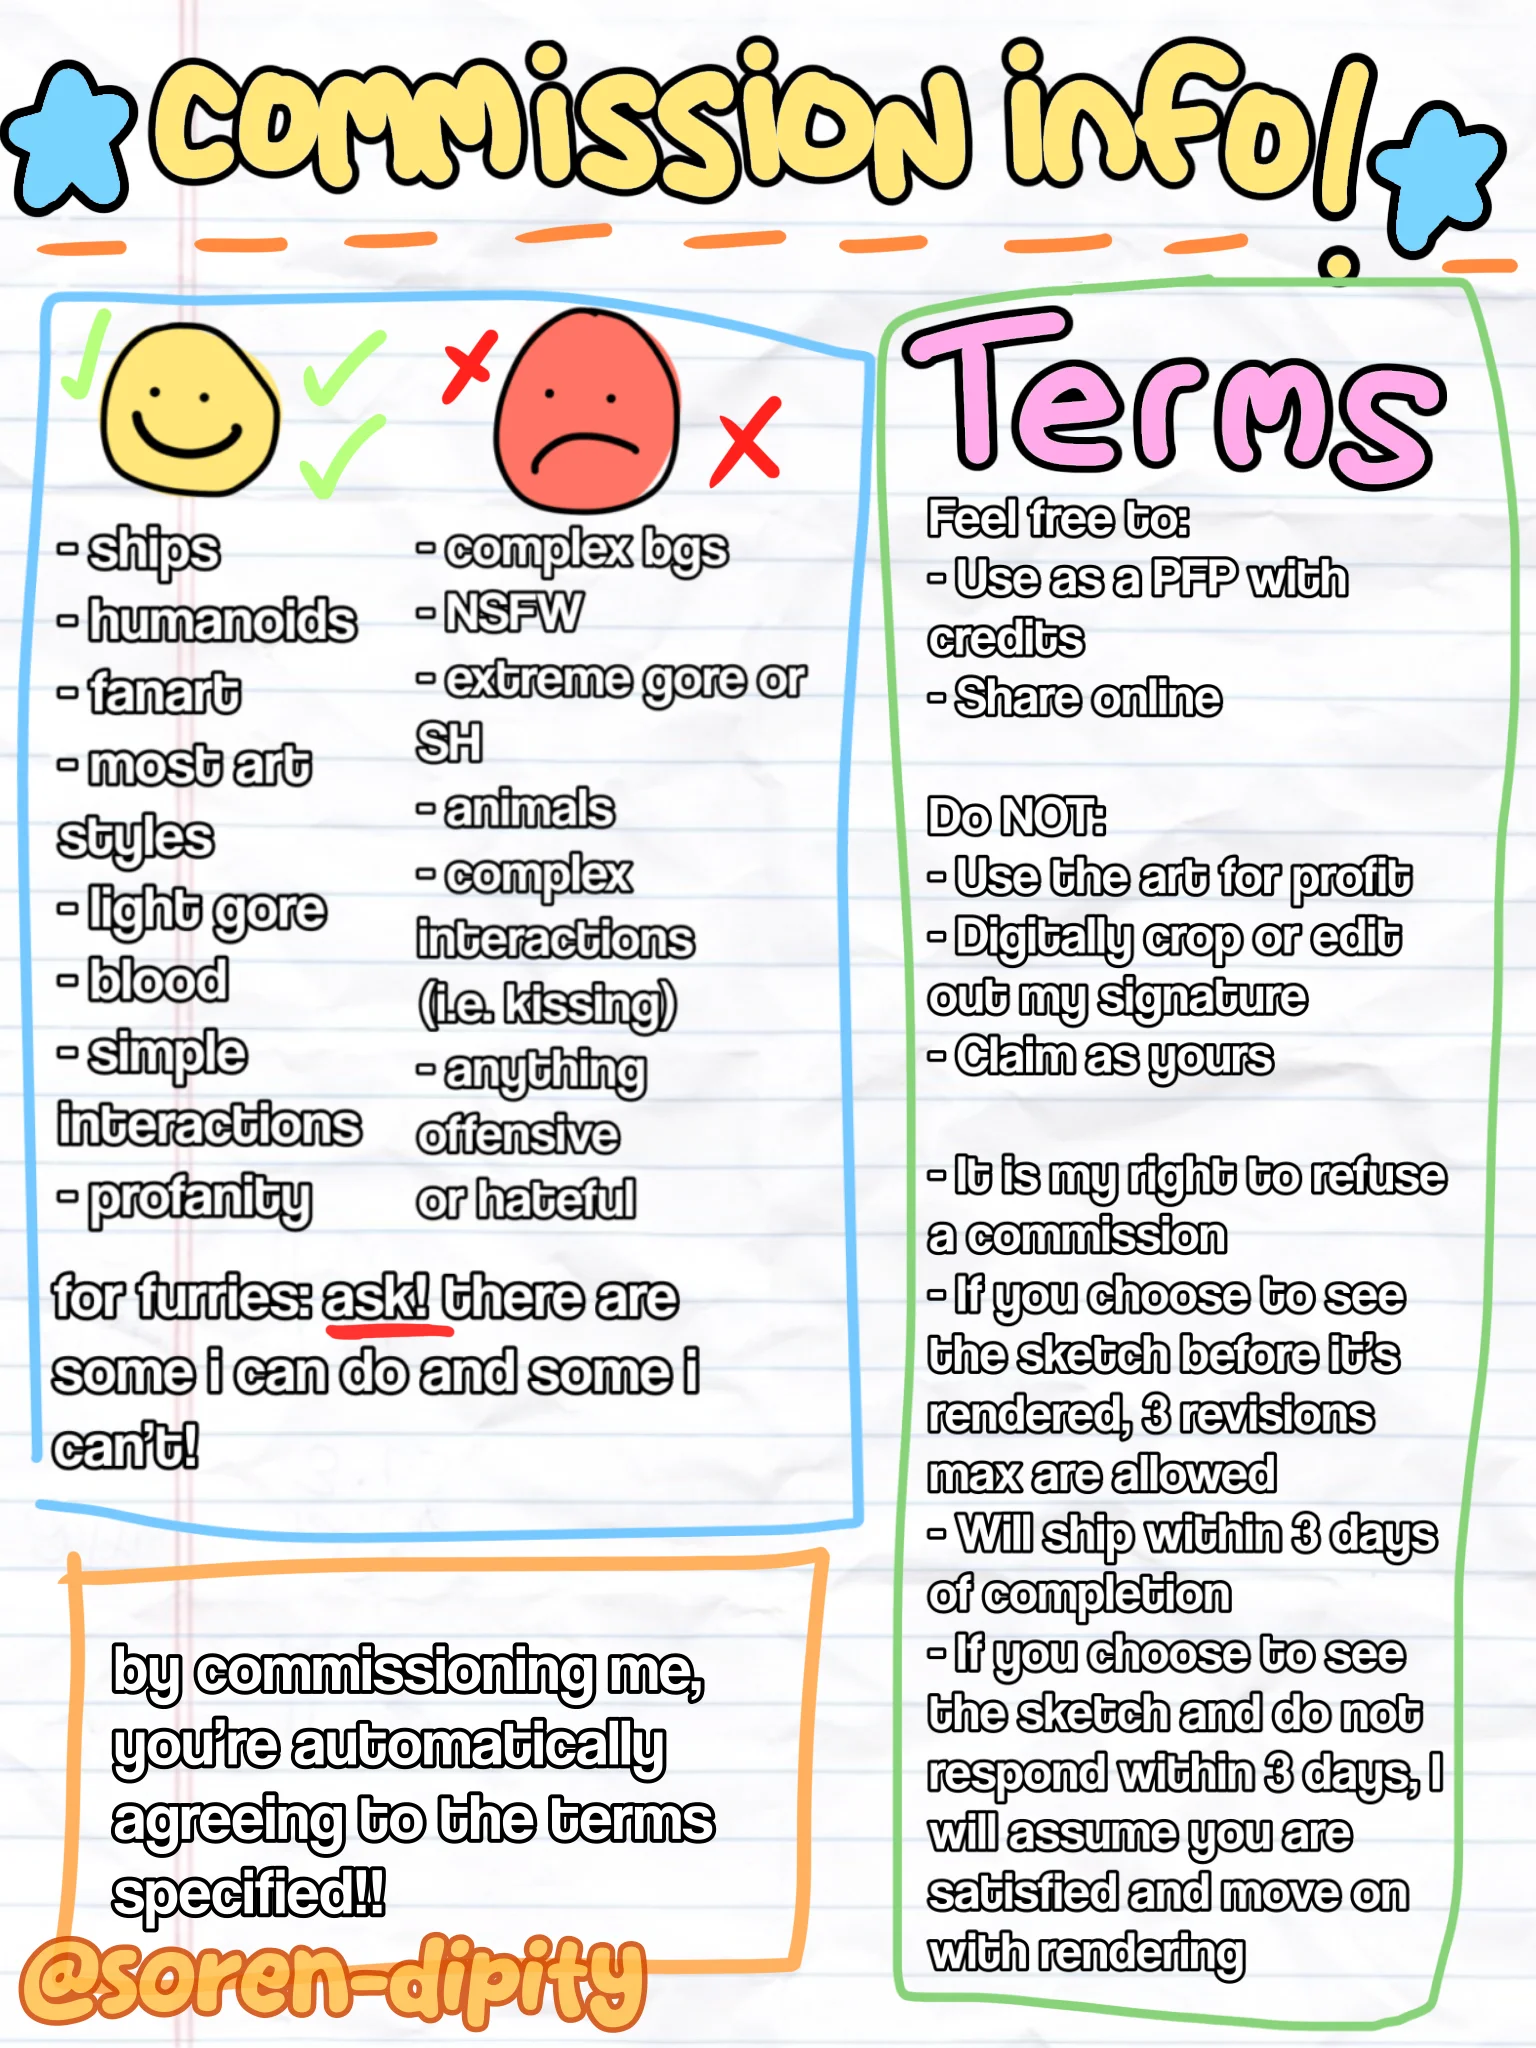 commission info!
- ships
- humanoids
- fanart
- most art
styles
- light gore
- blood
- simple
interactions
- profanity
- complex bgs
- NSFW
- extreme gore or
SH
- animals
- complex
interactions
(i.e. kissing)
- anything
offensive
or hateful
for furries: ask! there are
some i can do and some i
can't!
Terms
Feel free to:
- Use as a PFP with
credits
- Share online
Do NOT:
- Use the art for profit
- Digitally crop or edit
out my signature
- Claim as yours
- It is my right to refuse
a commission
- If you choose to see
the sketch before it's
rendered, 3 revisions
max are allowed
- Will ship within 3 days
of completion
- If you choose to see
the sketch and do not
respond within 3 days, I
will assume you are
satisfied and move on
with rendering
by commissioning me,
you're automatically
agreeing to the terms
specified!!
@soren-dipity